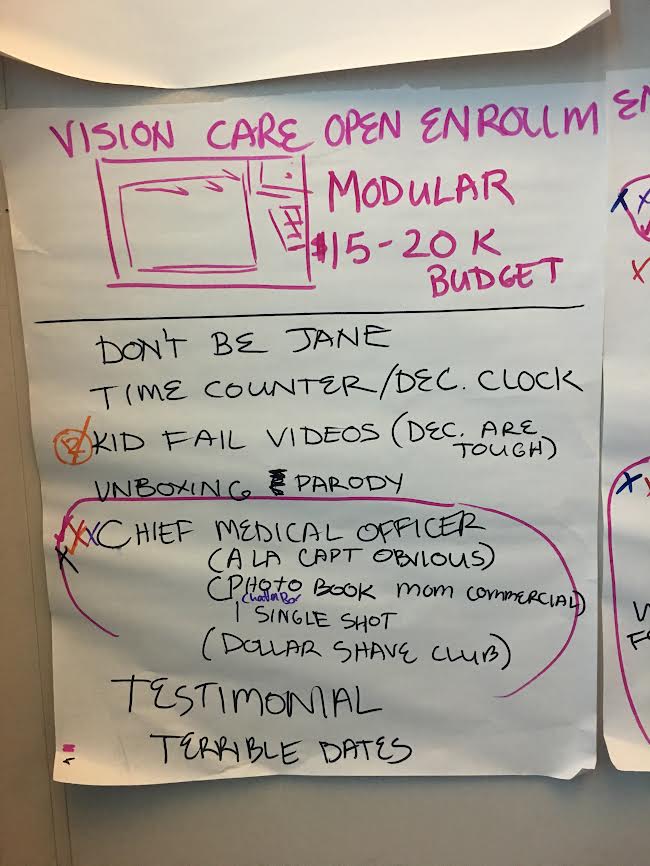 VISION CARE OPEN ENROLLM
MODULAR
$15-20 K
BUDGET
DON'T BE JANE
TIME COUNTER/DEC. CLOCK
KID FAIL VIDEOS (DEC. ARE
TOUGH)
UNBOXING PARODY
XXX CHIEF MEDICAL OFFICER
X
(A LA CAPT OBVIOUS)
(PHOTO BOOK MOM COMMERCIAL)
1 SINGLE SHOT
(DOLLAR SHAVE CLUB)
TESTIMONIAL
TERRIBLE DATES
EN
XX
X
X